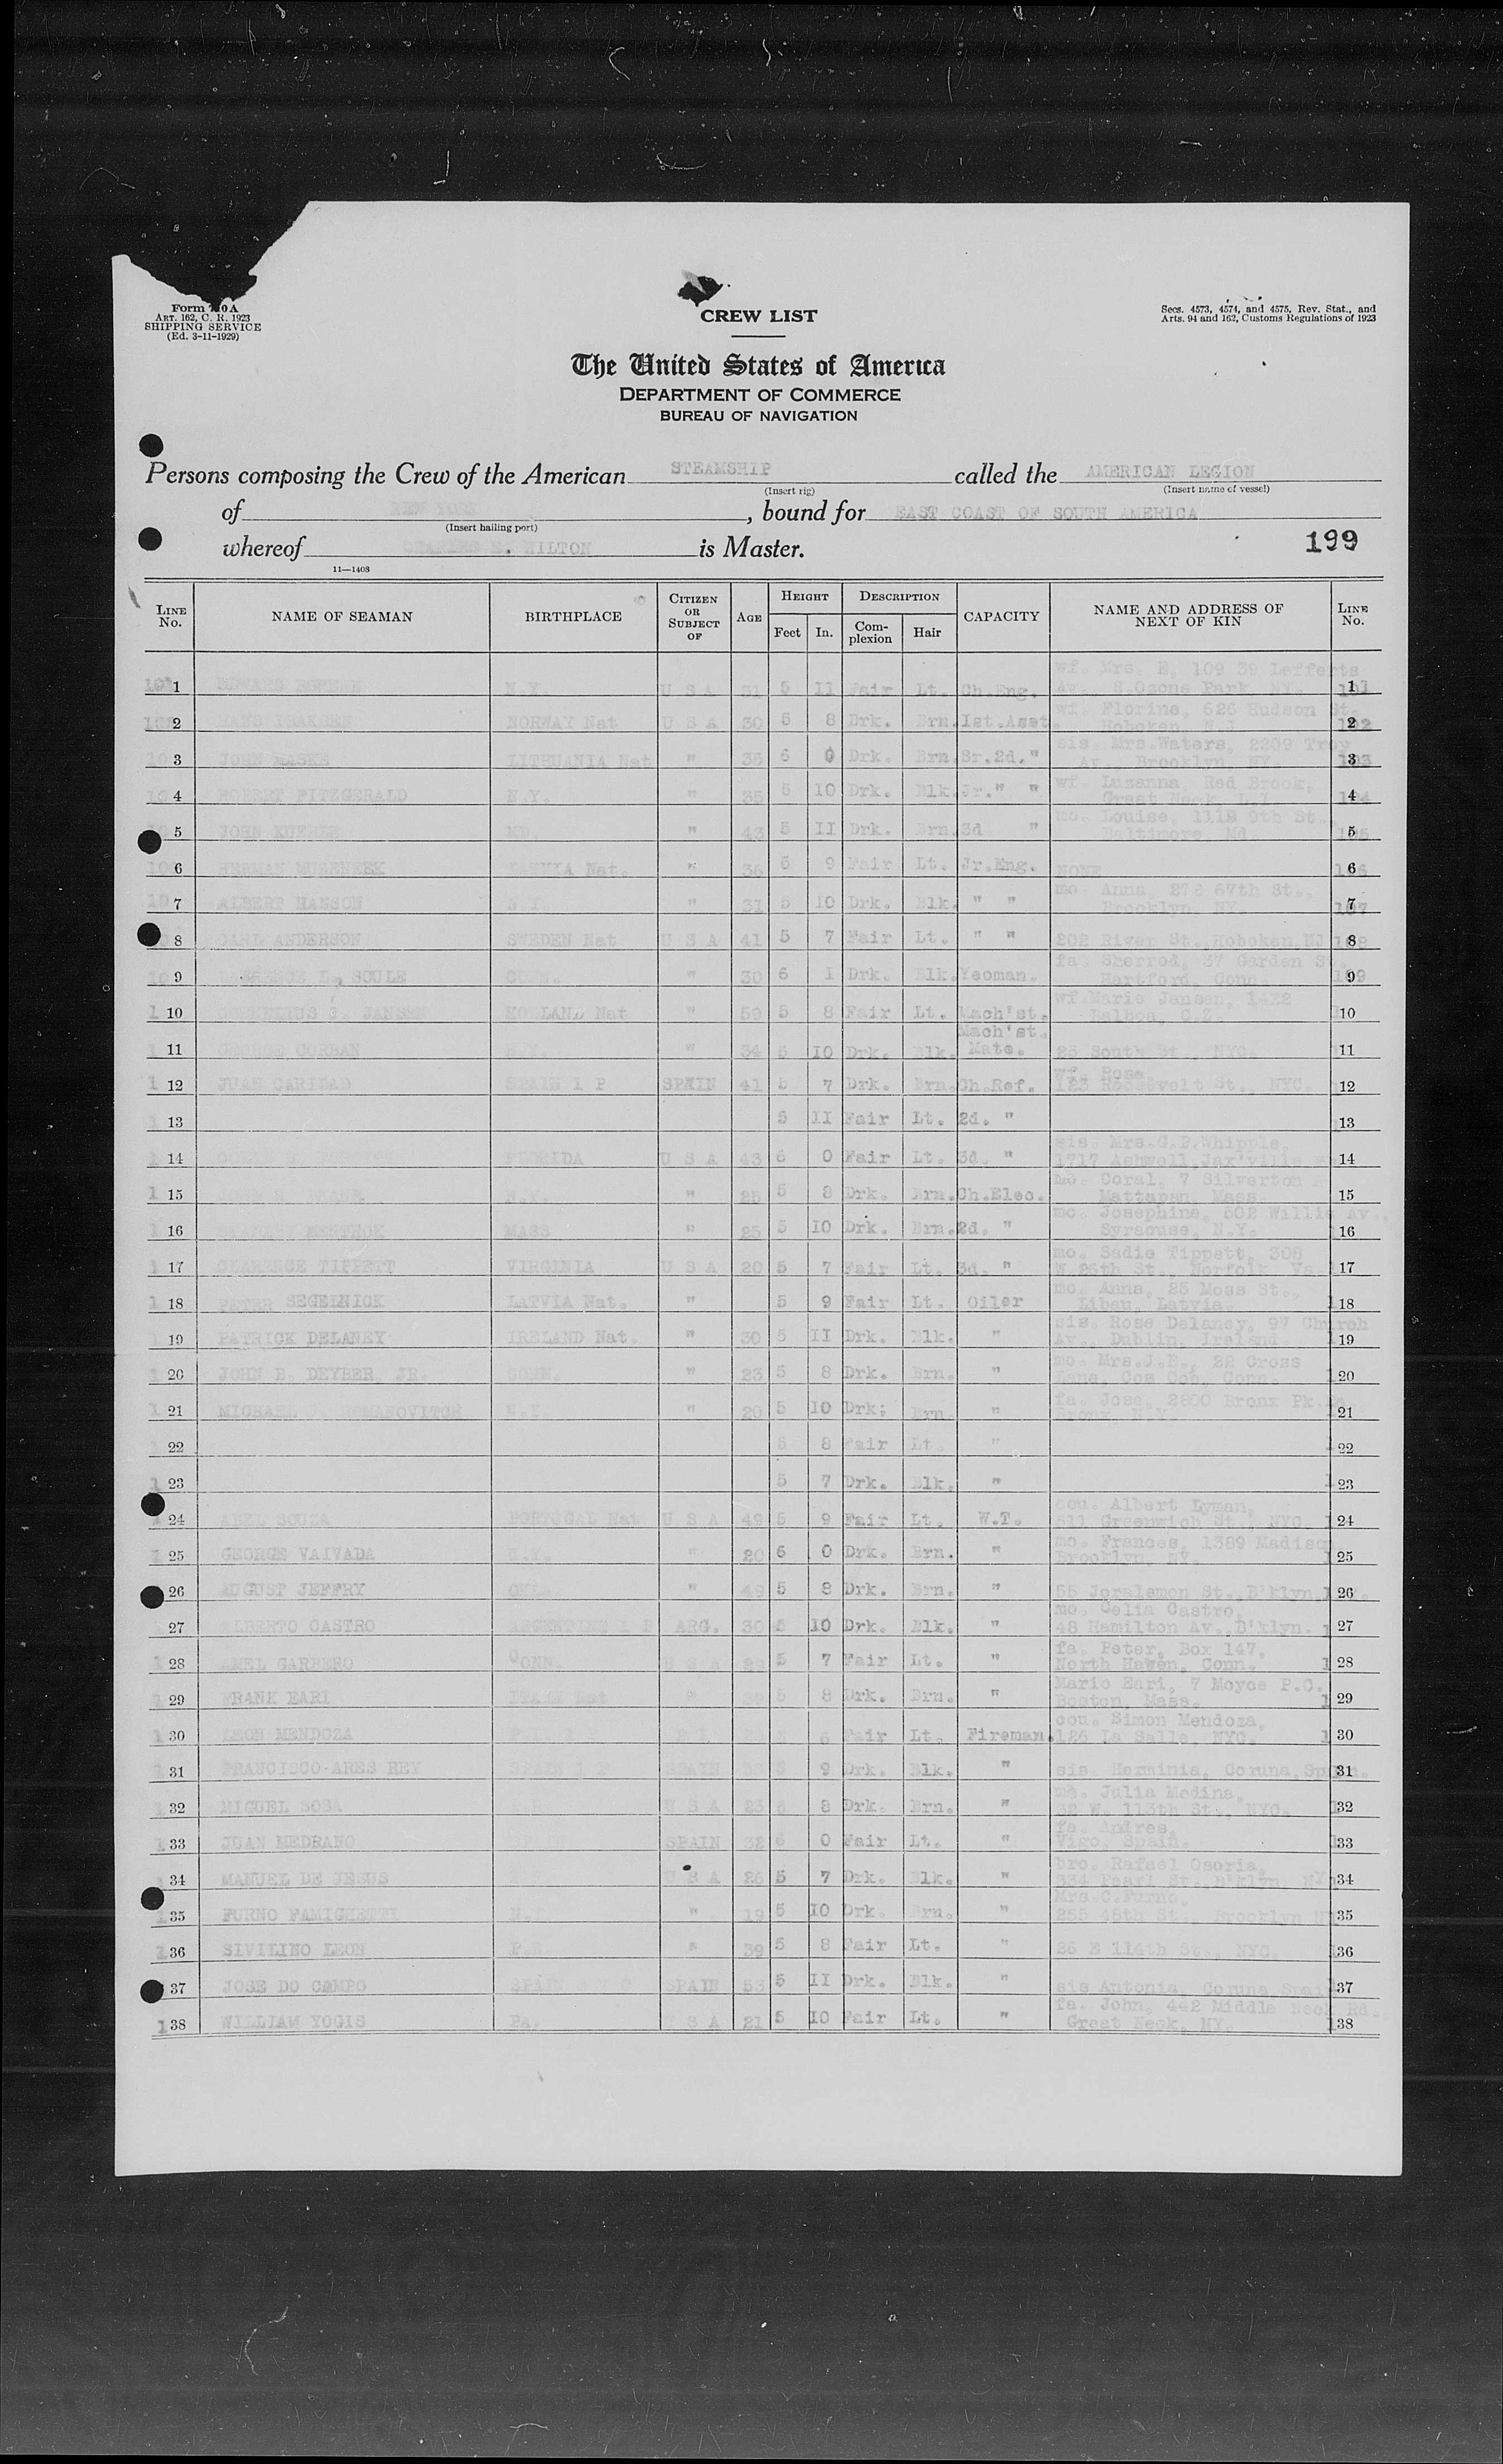 Form 710A
ART. 162, C. R. 1923
SHIPPING SERVICE
(Ed. 3-11-1929)
CREW LIST
Secs. 4573, 4574, and 4575, Rev. Stat., and
Arts. 94 and 162, Customs Regulations of 1923
The United States of America
DEPARTMENT OF COMMERCE
BUREAU OF NAVIGATION
Persons composing the Crew of the American STEAMSHIP called the AMERICAN LEGION
(Insert rig) (Insert name of vessel)
of NEW YORK, bound for EAST COAST OF SOUTH AMERICA
(Insert hailing port)
whereof HILTON is Master. 199
11—1408
LINE No. NAME OF SEAMAN BIRTHPLACE CITIZEN OR SUBJECT OF AGE HEIGHT Feet In. DESCRIPTION Complexion Hair CAPACITY NAME AND ADDRESS OF NEXT OF KIN LINE No.
1 EDWARD N.Y. U S A 31 5 11 Fair Lt. Ch.Eng. wf. Mrs. E. 109 39 Lefferts Av., S.Ozone Park, NY. 1
2 NORWAY Nat U S A 30 5 8 Drk. Brn. 1st.Asst. wf. Florine, 626 Hudson St. Hoboken, N.J. 2
3 JOHN LITHUANIA Nat " 35 6 0 Drk. Brn. Sr.2d." sis. Mrs.Waters, 2209 Troy Av., Brooklyn, NY. 3
4 ROBERT FITZGERALD N.Y. " 35 5 10 Drk. Blk. Jr." " wf. Luzanna, Red Brook, Great Neck, L.I. 4
5 JOHN MD. " 43 5 11 Drk. Brn. 3d " mo. Louise, 1119 9th St., Baltimore, Md. 5
6 HERMAN Nat. " 36 5 9 Fair Lt. Jr.Eng. NONE 6
7 ALBERT HANSON N.Y. " 31 5 10 Drk. Blk. " " mo. Anna, 272 67th St., Brooklyn, NY. 7
8 CARL ANDERSON SWEDEN Nat U S A 41 5 7 Fair Lt. " " 202 River St., Hoboken, NJ 8
9 SOULE CONN. " 30 6 1 Drk. Blk. Yeoman. fa. Sherrod, 37 Garden St., Hartford, Conn. 9
10 CORNELIUS J. JANSEN HOLLAND Nat " 59 5 8 Fair Lt. Mach'st. wf. Marie Jansen, 1422 Balboa, C.Z. 10
11 GEORGE N.Y. " 34 5 10 Drk. Blk. Mach'st. Mate. 25 South St., NYC. 11
12 JUAN CARIDAD SPAIN 1 P SPAIN 41 5 7 Drk. Brn. Ch.Ref. wf. Rose, 123 Roosevelt St., NYC. 12
13 5 11 Fair Lt. 2d. " 13
14 FLORIDA U S A 43 6 0 Fair Lt. 3d. " sis. Mrs.G.P.Whipple, 1717 Ashwell, Jax'ville 14
15 JOHN N.Y. " 25 5 8 Drk. Brn. Ch.Elec. mo. Coral, 7 Silverton Mattapan, Mass. 15
16 MASS " 25 5 10 Drk. Brn. 2d. " mo. Josephine, 502 Willis Av., Syracuse, N.Y. 16
17 CLARENCE TIPPETT VIRGINIA U S A 20 5 7 Fair Lt. 3d. " mo. Sadie Tippett, 308 W.26th St., Norfolk Va. 17
18 PETER SEGELNICK LATVIA Nat. " 5 9 Fair Lt. Oiler mo. Anna, 25 Moss St., Libau, Latvia. 18
19 PATRICK DELANEY IRELAND Nat. " 30 5 11 Drk. Blk. " sis. Rose Delaney, 97 Church Av., Dublin, Ireland. 19
20 JOHN B. DEYBER, JR. CONN. " 23 5 8 Drk. Brn. " mo. Mrs.J.B., 22 Cross Lane, Cos Cob, Conn. 20
21 MICHAEL ROMANOVITCH N.Y. " 20 5 10 Drk; Brn " fa. Jose, 2800 Bronx Pk. Bronx, N.Y. 21
22 5 8 Fair Lt. " 22
23 5 7 Drk. Blk. " 23
24 ABEL SOUZA PORTUGAL Nat U S A 49 5 9 Fair Lt. W.T. cou. Albert Lyman, 511 Greenwich St., NYC. 24
25 GEORGE VAIVADA N.Y. " 20 6 0 Drk. Brn. " mo. Frances, 1389 Madison Brooklyn, NY. 25
26 AUGUST JEFFRY OKLA. " 49 5 8 Drk. Brn. " 55 Joralemon St., B'klyn 26
27 ALBERTO CASTRO ARGENTINE 1 P ARG. 30 5 10 Drk. Blk. " mo. Celia Castro, 48 Hamilton Av., B'klyn. 27
28 AMEL GARBERO CONN. U S A 29 5 7 Fair Lt. " fa. Peter, Box 147, North Haven, Conn. 28
29 FRANK EARI ITALY Nat " 5 8 Drk. Brn. " Mario Eari, 7 Moyce P.O. Boston, Mass. 29
30 LEON MENDOZA P.I. Fair Lt. Fireman. cou. Simon Mendoza, 126 La Salle, NYC. 30
31 FRANCISCO ARES REY SPAIN 1 P SPAIN 9 Drk. Blk. " sis. Herminia, Coruna, Spain. 31
32 MIGUEL SOSA U S A 23 8 Drk. Brn. " mo. Julia Medina, 32 W. 113th St., NYC. 32
33 JUAN MEDRANO SPAIN SPAIN 32 6 0 Fair Lt. " fa. Andres, Vigo, Spain. 33
34 MANUEL DE JESUS U S A 26 5 7 Drk. Blk. " bro. Rafael Osoria, 334 Pearl St., B'klyn, NY 34
35 FURNO FAMIGHETTI N.Y. " 19 5 10 Drk. Brn. " Mrs.C.Furno, 255 48th St., Brooklyn 35
36 SIVILINO LEON P.R. " 39 5 8 Fair Lt. " 26 E 114th St., NYC. 36
37 JOSE DO CAMPO SPAIN SPAIN 53 5 11 Drk. Blk. " sis Antonia, Coruna Spain 37
38 WILLIAM YOGIS PA. U S A 21 5 10 Fair Lt. " fa. John, 442 Middle Neck Rd. Great Neck, NY. 38